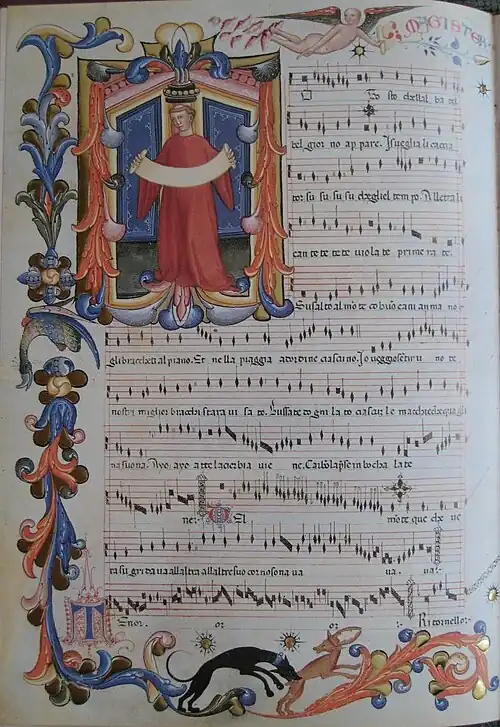 MAGISTER
To sto chellal ba del
bel gior no ap pare. Isueglia li caccia
tor su su su su chegliel tempo. Alletta li
can te te te te uiola te primera te.
Su salto al mō te co buō cani a ma no e
gli bracchetti al piano. Et nella piaggia a tordine ciascuno. Io ueggio sētir u no de
nostri miglior bracchi stara ui sa to. Bussate do gni la to ciascū le macchie che qua gli
na suona. Ayo ayo a tte la cierbia uie ne. Carbō la pſe in bocha la te
ne: El mōte que che ue
ta su grida ua allaltra allaltre suo corno sona ua ua . ua:
Tenor. or or . Ritornello: